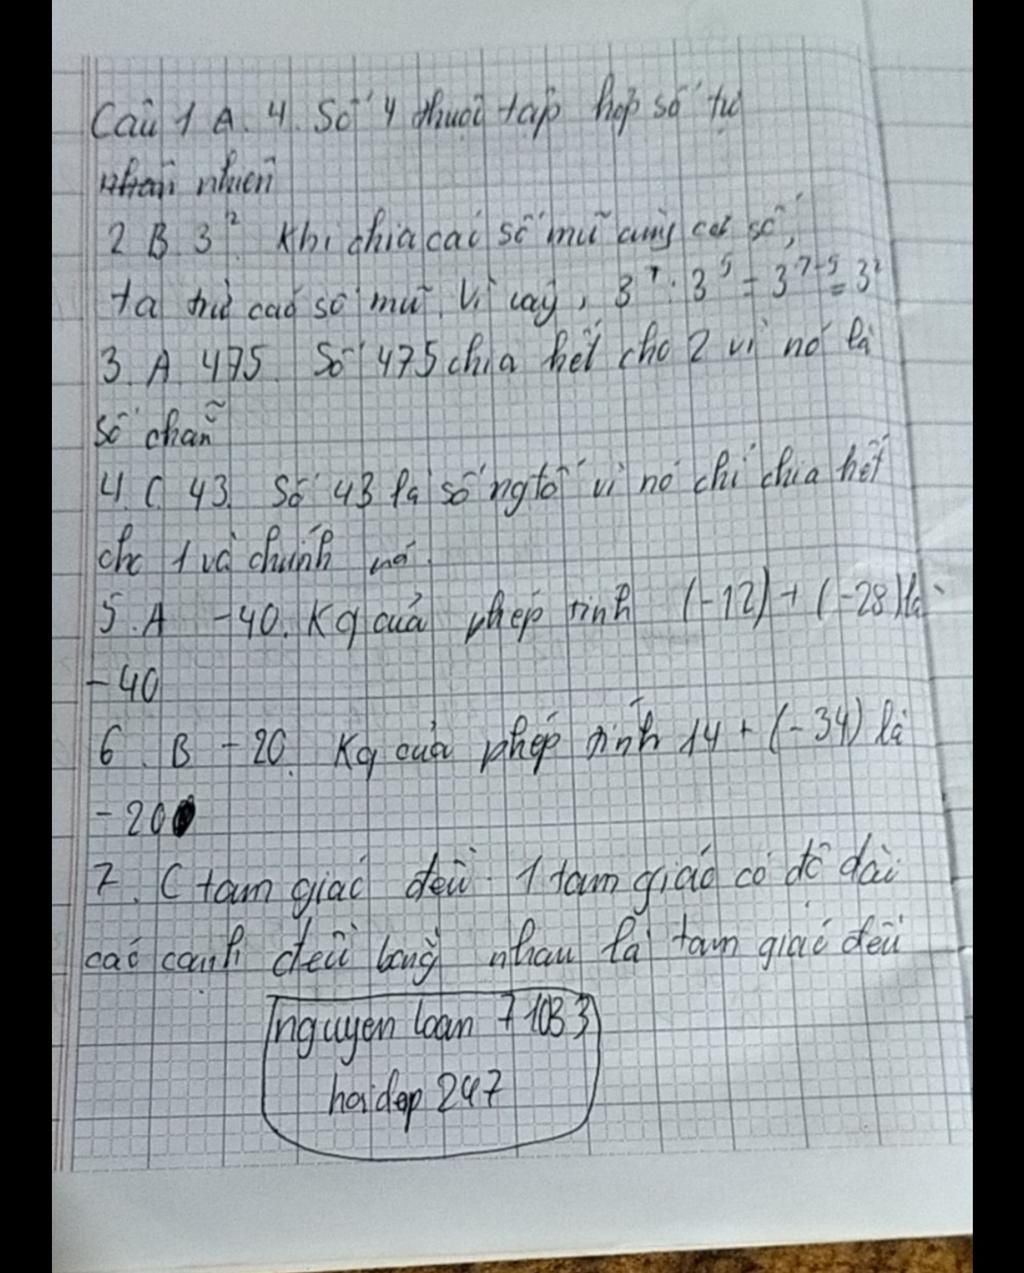 Câu 1 A. 4. Số 4 thuộc tập hợp số tự
nhiên
2 B. 3². Khi chia các số mũ cùng cơ số,
ta trừ các số mũ. Vì vậy, 3⁷ : 3⁵ = 3⁷⁻⁵ = 3²
3. A. 475. Số 475 chia hết cho 2 vì nó là
số chẵn
4. C. 43. Số 43 là số ngtố vì nó chỉ chia hết
cho 1 và chính nó.
5. A -40. Kq của phép tính (-12) + (-28) là
-40
6. B -20. Kq của phép tính 14 + (-34) là
-20
7. C tam giác đều. 1 tam giác có độ dài
các cạnh đều bằng nhau là tam giác đều
nguyen loan 7 1033
hoidap 247